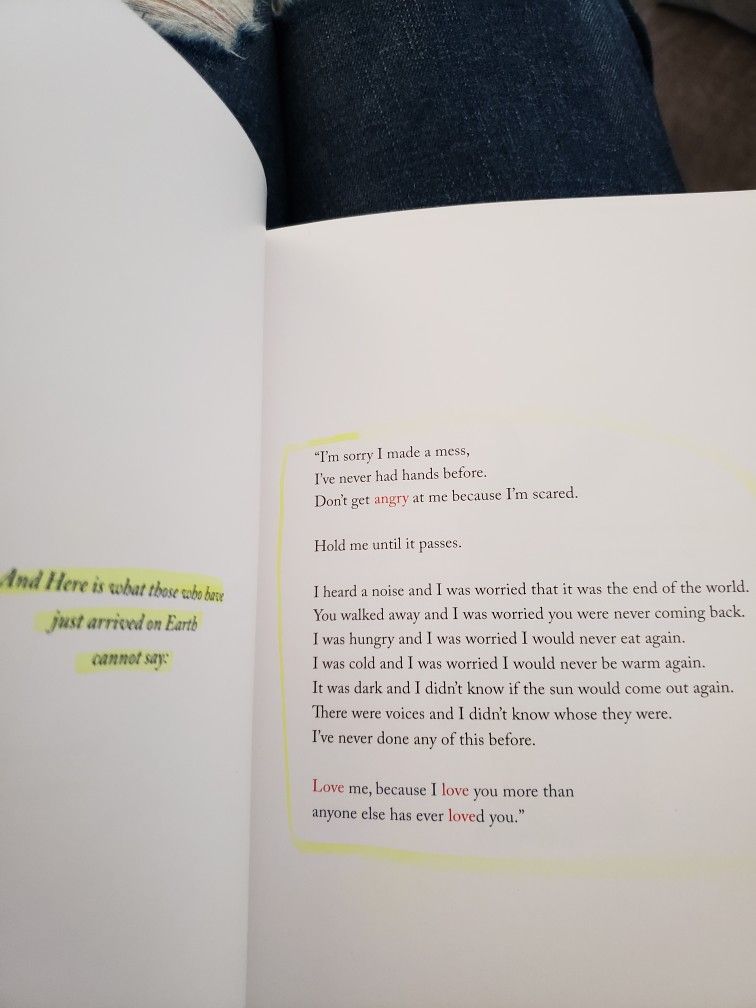 And Here is what those who have
just arrived on Earth
cannot say:
“I’m sorry I made a mess,
I’ve never had hands before.
Don’t get angry at me because I’m scared.
Hold me until it passes.
I heard a noise and I was worried that it was the end of the world.
You walked away and I was worried you were never coming back.
I was hungry and I was worried I would never eat again.
I was cold and I was worried I would never be warm again.
It was dark and I didn’t know if the sun would come out again.
There were voices and I didn’t know whose they were.
I’ve never done any of this before.
Love me, because I love you more than
anyone else has ever loved you.”